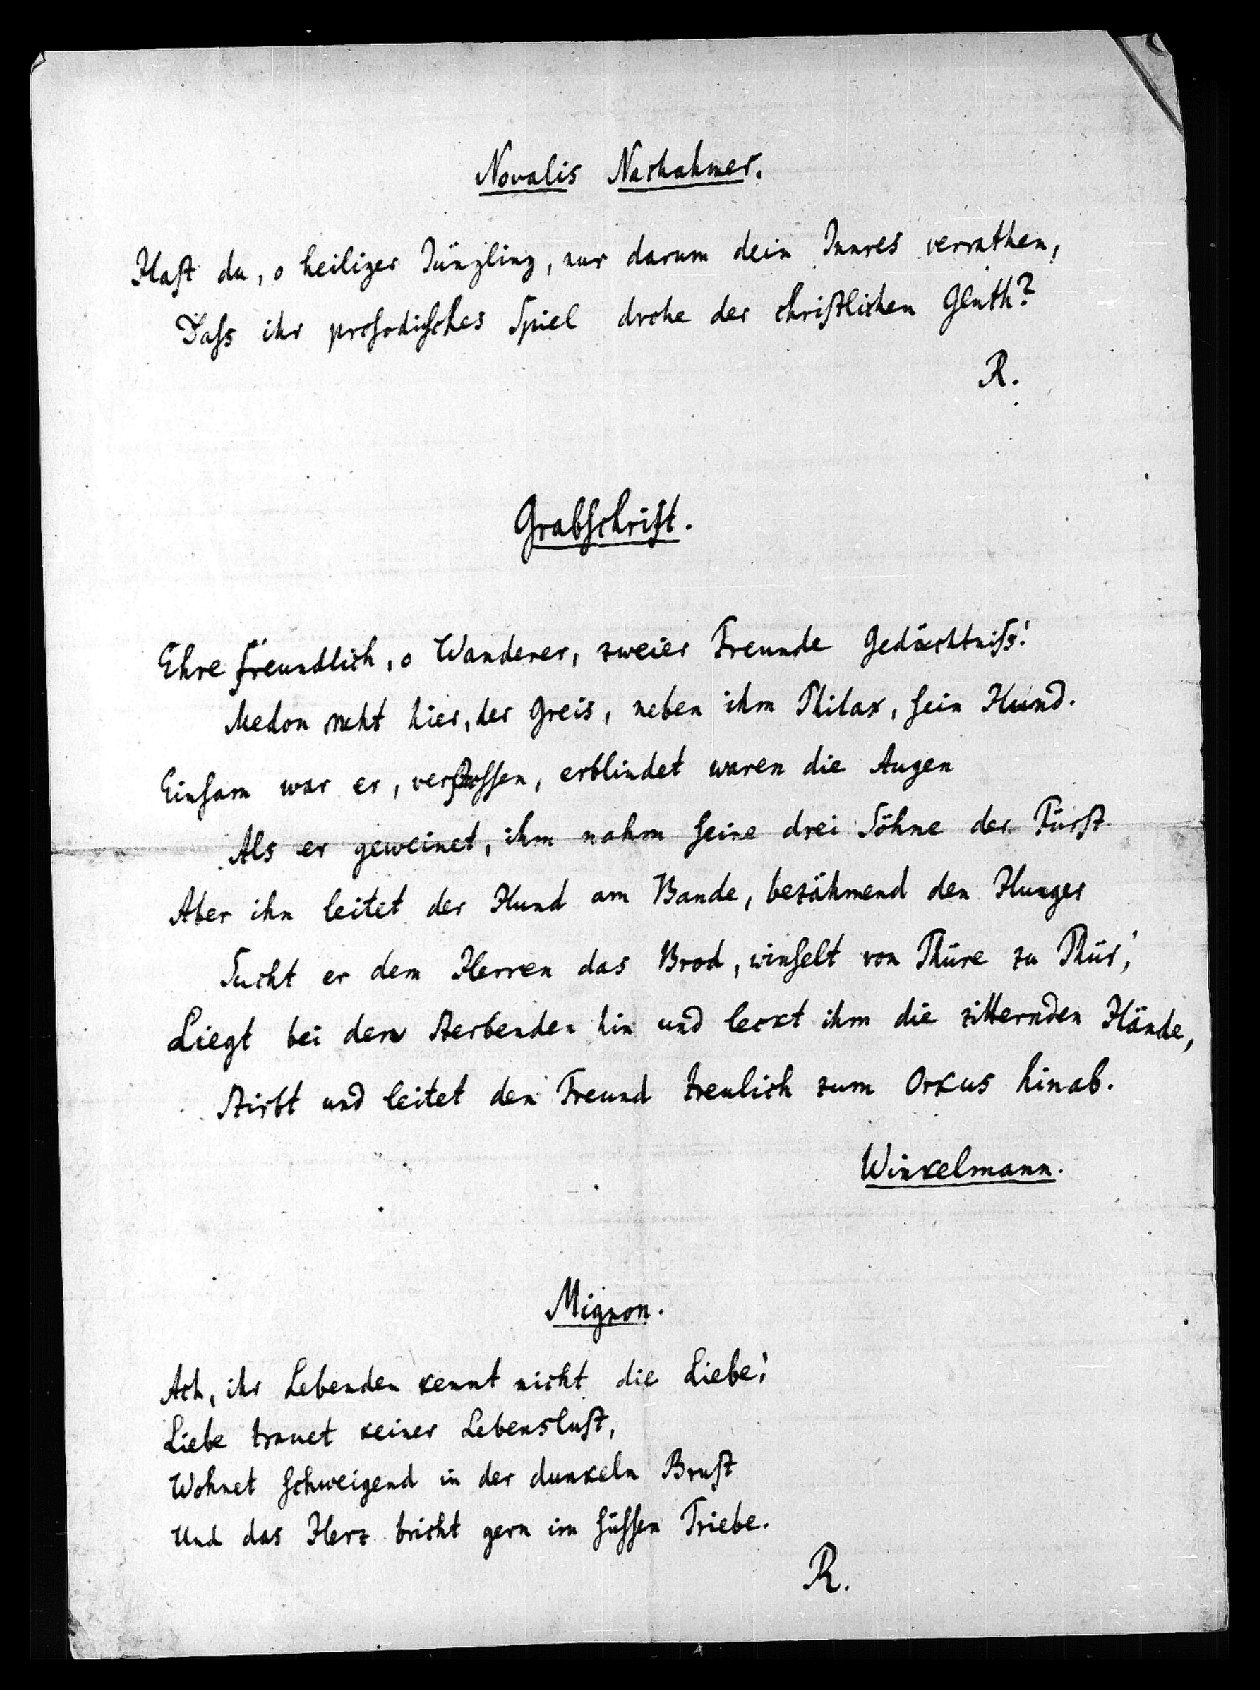 Novalis Nachahmer.
Hast du, o heiliger Jüngling, nur darum dein Innres verrathen,
Dass ihr prosodisches Spiel drohe der christlichen Gluth?
R.
Grabschrift.
Ehre freundlich, o Wanderer, zweier Freunde Gedächtniss!
Medon ruht hier, der Greis, neben ihm Philax, sein Hund.
Einsam war er, verstossen, erblindet waren die Augen
Als er geweinet, ihm nahm seine drei Söhne der Fürst
Aber ihn leitet der Hund am Bande, bezähmend den Hunger
Sucht er dem Herren das Brod, winselt von Thüre zu Thür,
Liegt bei dem Sterbenden hin und leckt ihm die zitternden Hände,
Stirbt und leitet den Freund treulich zum Orkus hinab.
Winkelmann.
Mignon.
Ach, ihr Lebenden kennt nicht die Liebe!
Liebe trauet keiner Lebenslust,
Wohnet schweigend in der dunkeln Brust
Und das Herz bricht gern im süssen Triebe.
R.